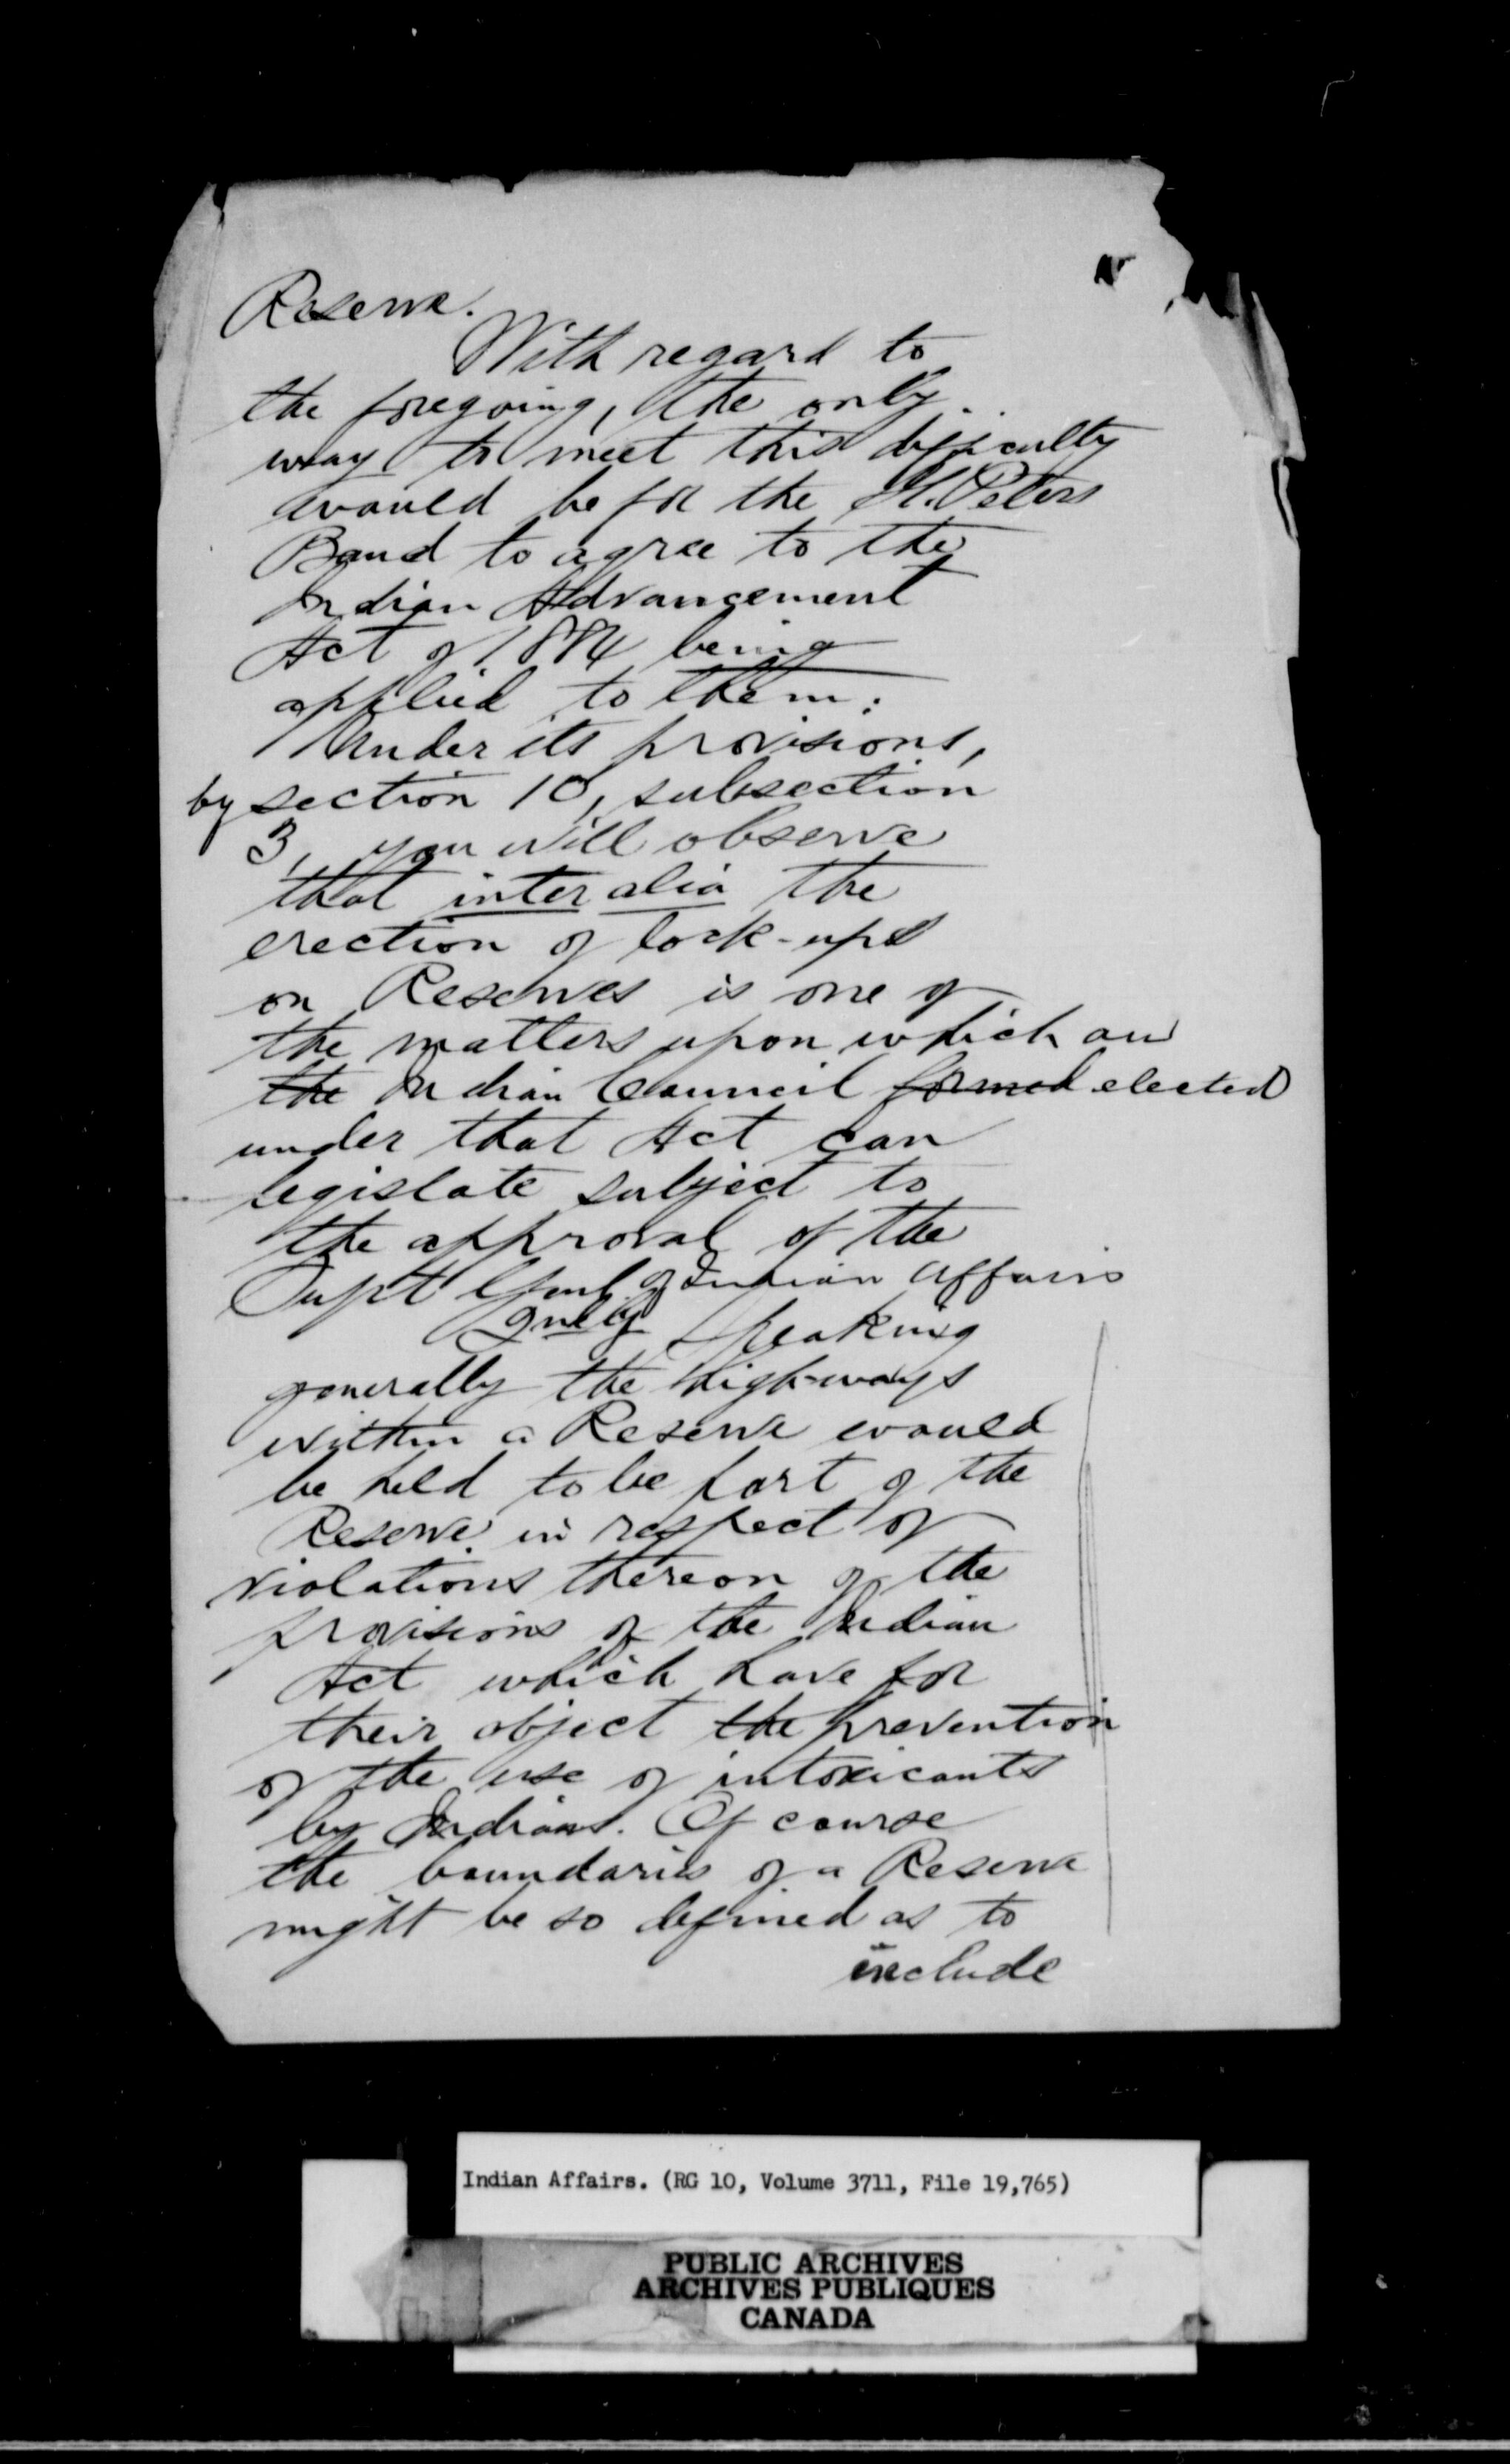 Reserve.
With regard to
the foregoing, the only
way to meet this difficulty
would be for the St. Peters
Band to agree to the
Indian Advancement
Act of 1884 being
applied to them.
Under its provisions,
by section 10, subsection
3, you will observe
that inter alia the
erection of lock-ups
on Reserves is one of
the matters upon which an
the Indian Council formed elected
under that Act can
legislate subject to
the approval of the
Supt Genl of Indian Affairs
2ndly Speaking
generally the high-ways
within a Reserve would
be held to be part of the
Reserve in respect of
violations thereon of the
provisions of the Indian
Act which have for
their object the prevention
of the use of intoxicants
by Indians. Of course
the boundaries of a Reserve
might be so defined as to
include
Indian Affairs. (RG 10, Volume 3711, File 19,765)
PUBLIC ARCHIVES
ARCHIVES PUBLIQUES
CANADA